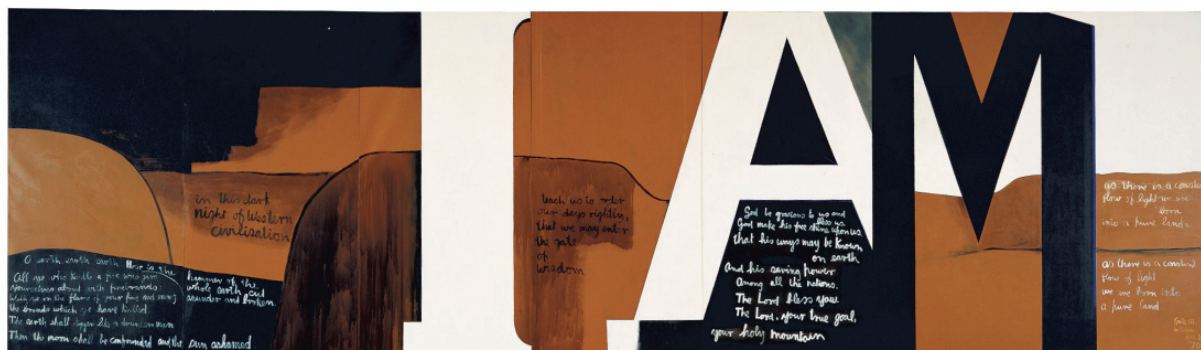 I AM
in this dark
night of Western
civilisation
O earth earth earth How is the
hammer of the
whole earth cut
asunder and broken.
All ye who kindle a fire who gird
yourselves about with firebrands:
Walk ye in the flame of your fire and among
the brands which ye have kindled
The earth shall stagger like a drunken man
Then the moon shall be confounded and the sun ashamed
teach us to order
our days rightly,
that we may enter
the gate
of
wisdom
God be gracious to us and
bless us
God make his face shine upon us
that his ways may be known
on earth
And his saving power
Among all the nations.
The Lord bless you
The Lord, your true goal,
your holy mountain
as there is a constant
flow of light we are
born
into a pure land
as there is a constant
flow of light
we are born into
a pure land.